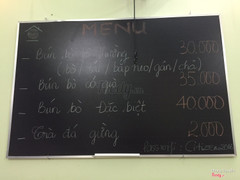 MENU
- Bún bò 30.000
(bò / / bắp heo / gân / chả)
- Bún bò 35.000
- Bún bò Đặc biệt 40.000
- Trà đá gừng 2.000